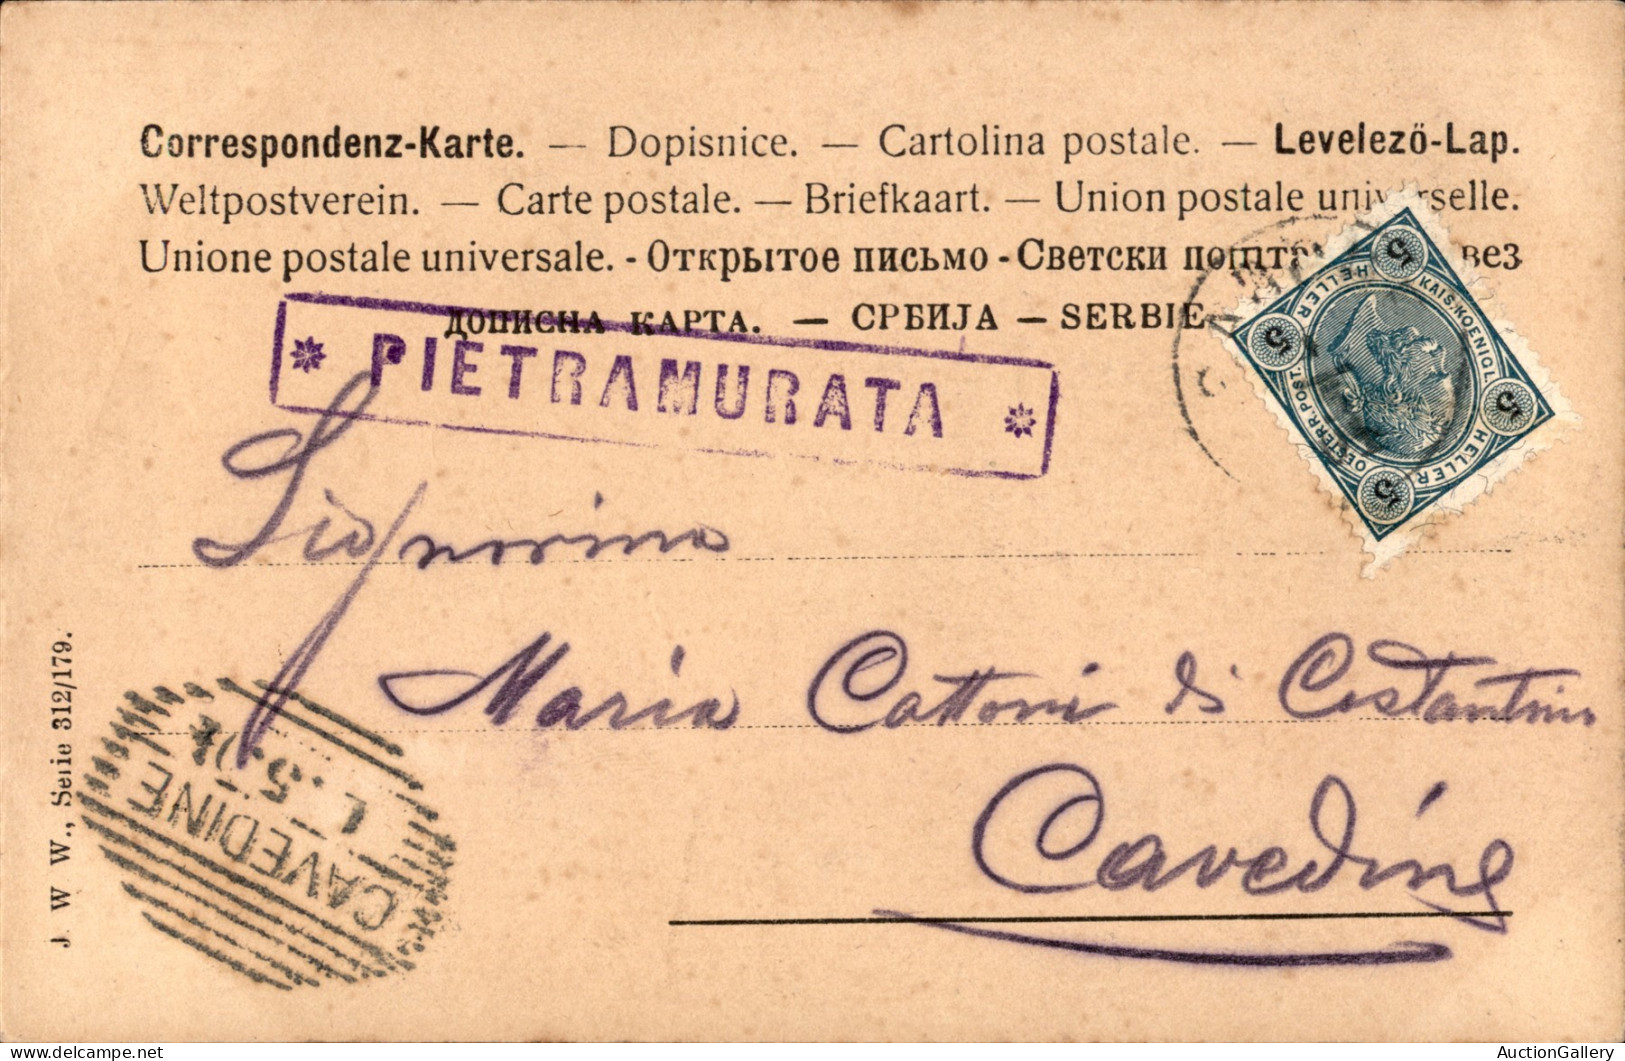 Correspondenz-Karte. — Dopisnice. — Cartolina postale. — Levelezö-Lap.
Weltpostverein. — Carte postale. — Briefkaart. — Union postale universelle.
Unione postale universale. - Открытое письмо - Светски
вез
дописна карта. — СРБИЈА — SERBIE
* PIETRAMURATA *
KAIS. KOENIGL.
OESTERR. POST.
5 HELLER 5
5 HELLER 5
Signorina
Maria Cattoni di Costantino
Cavedine
CAVEDINE
J. W. W., Serie 312/179.
AuctionGallery